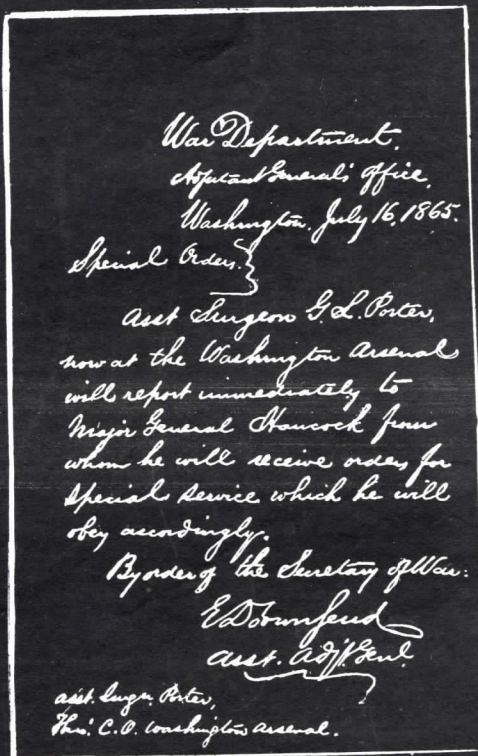 War Department,
Adjutant General's Office,
Washington. July 16, 1865.
Special Orders.
Asst Surgeon G. L. Porter,
now at the Washington Arsenal
will report immediately to
Major General Hancock from
whom he will receive orders for
special service which he will
obey accordingly.
By order of the Secretary of War:
E D Townsend
Asst. Adjt. Genl.
Asst. Surgn. Porter,
Thro'. C.O. Washington Arsenal.